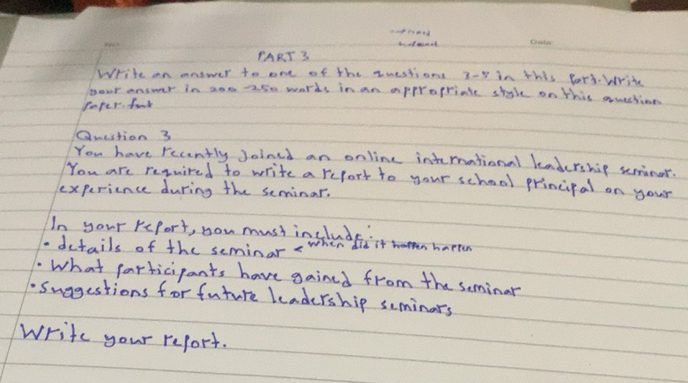 PART 3
Write an answer to one of the questions 3-5 in this Part. Write
your answer in 200-250 words in an appropriate style on this question
Paper.
Question 3
You have recently joined an online international leadership seminar.
You are required to write a report to your school principal on your
experience during the seminar.
In your report, you must include:
• details of the seminar < when did it happen
• What participants have gained from the seminar
• Suggestions for future leadership seminars
Write your report.